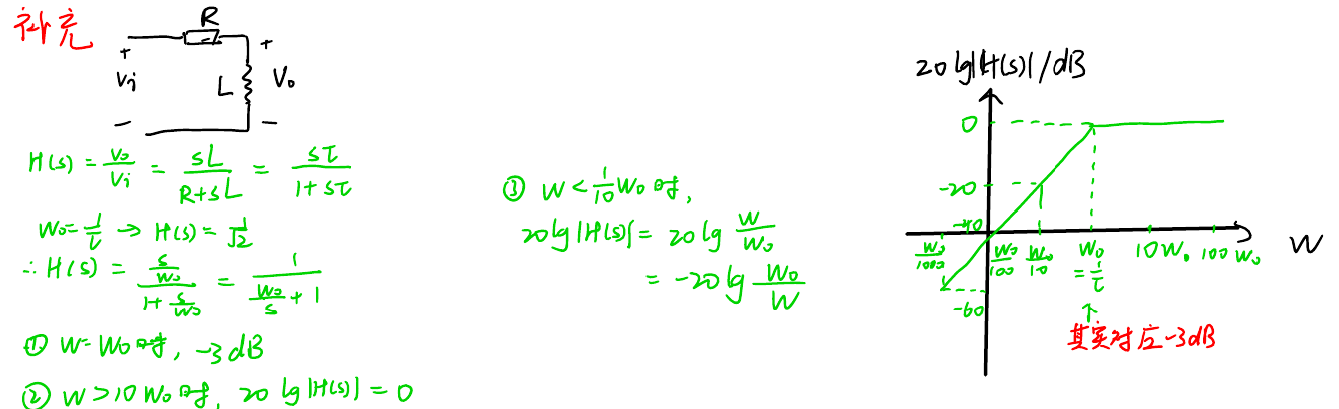 补充
R
+ +
Vi L Vo
− −
H(s) = Vo/Vi = sL/(R+sL) = sτ/(1+sτ)
W₀ = 1/τ → H(s) = 1/√2
∴ H(s) = (s/W₀)/(1+s/W₀) = 1/(W₀/s + 1)
① W=W₀时, -3dB
② W>10W₀时, 20lg|H(s)| = 0
③ W<1/10 W₀时,
20lg|H(s)| = 20lg W/W₀
= -20lg W₀/W
20lg|H(s)|/dB
0
-20
-40
W₀/1000 W₀/100 W₀/10 W₀ 10W₀ 100W₀ W
= 1/τ
-60
↑
其实对应-3dB